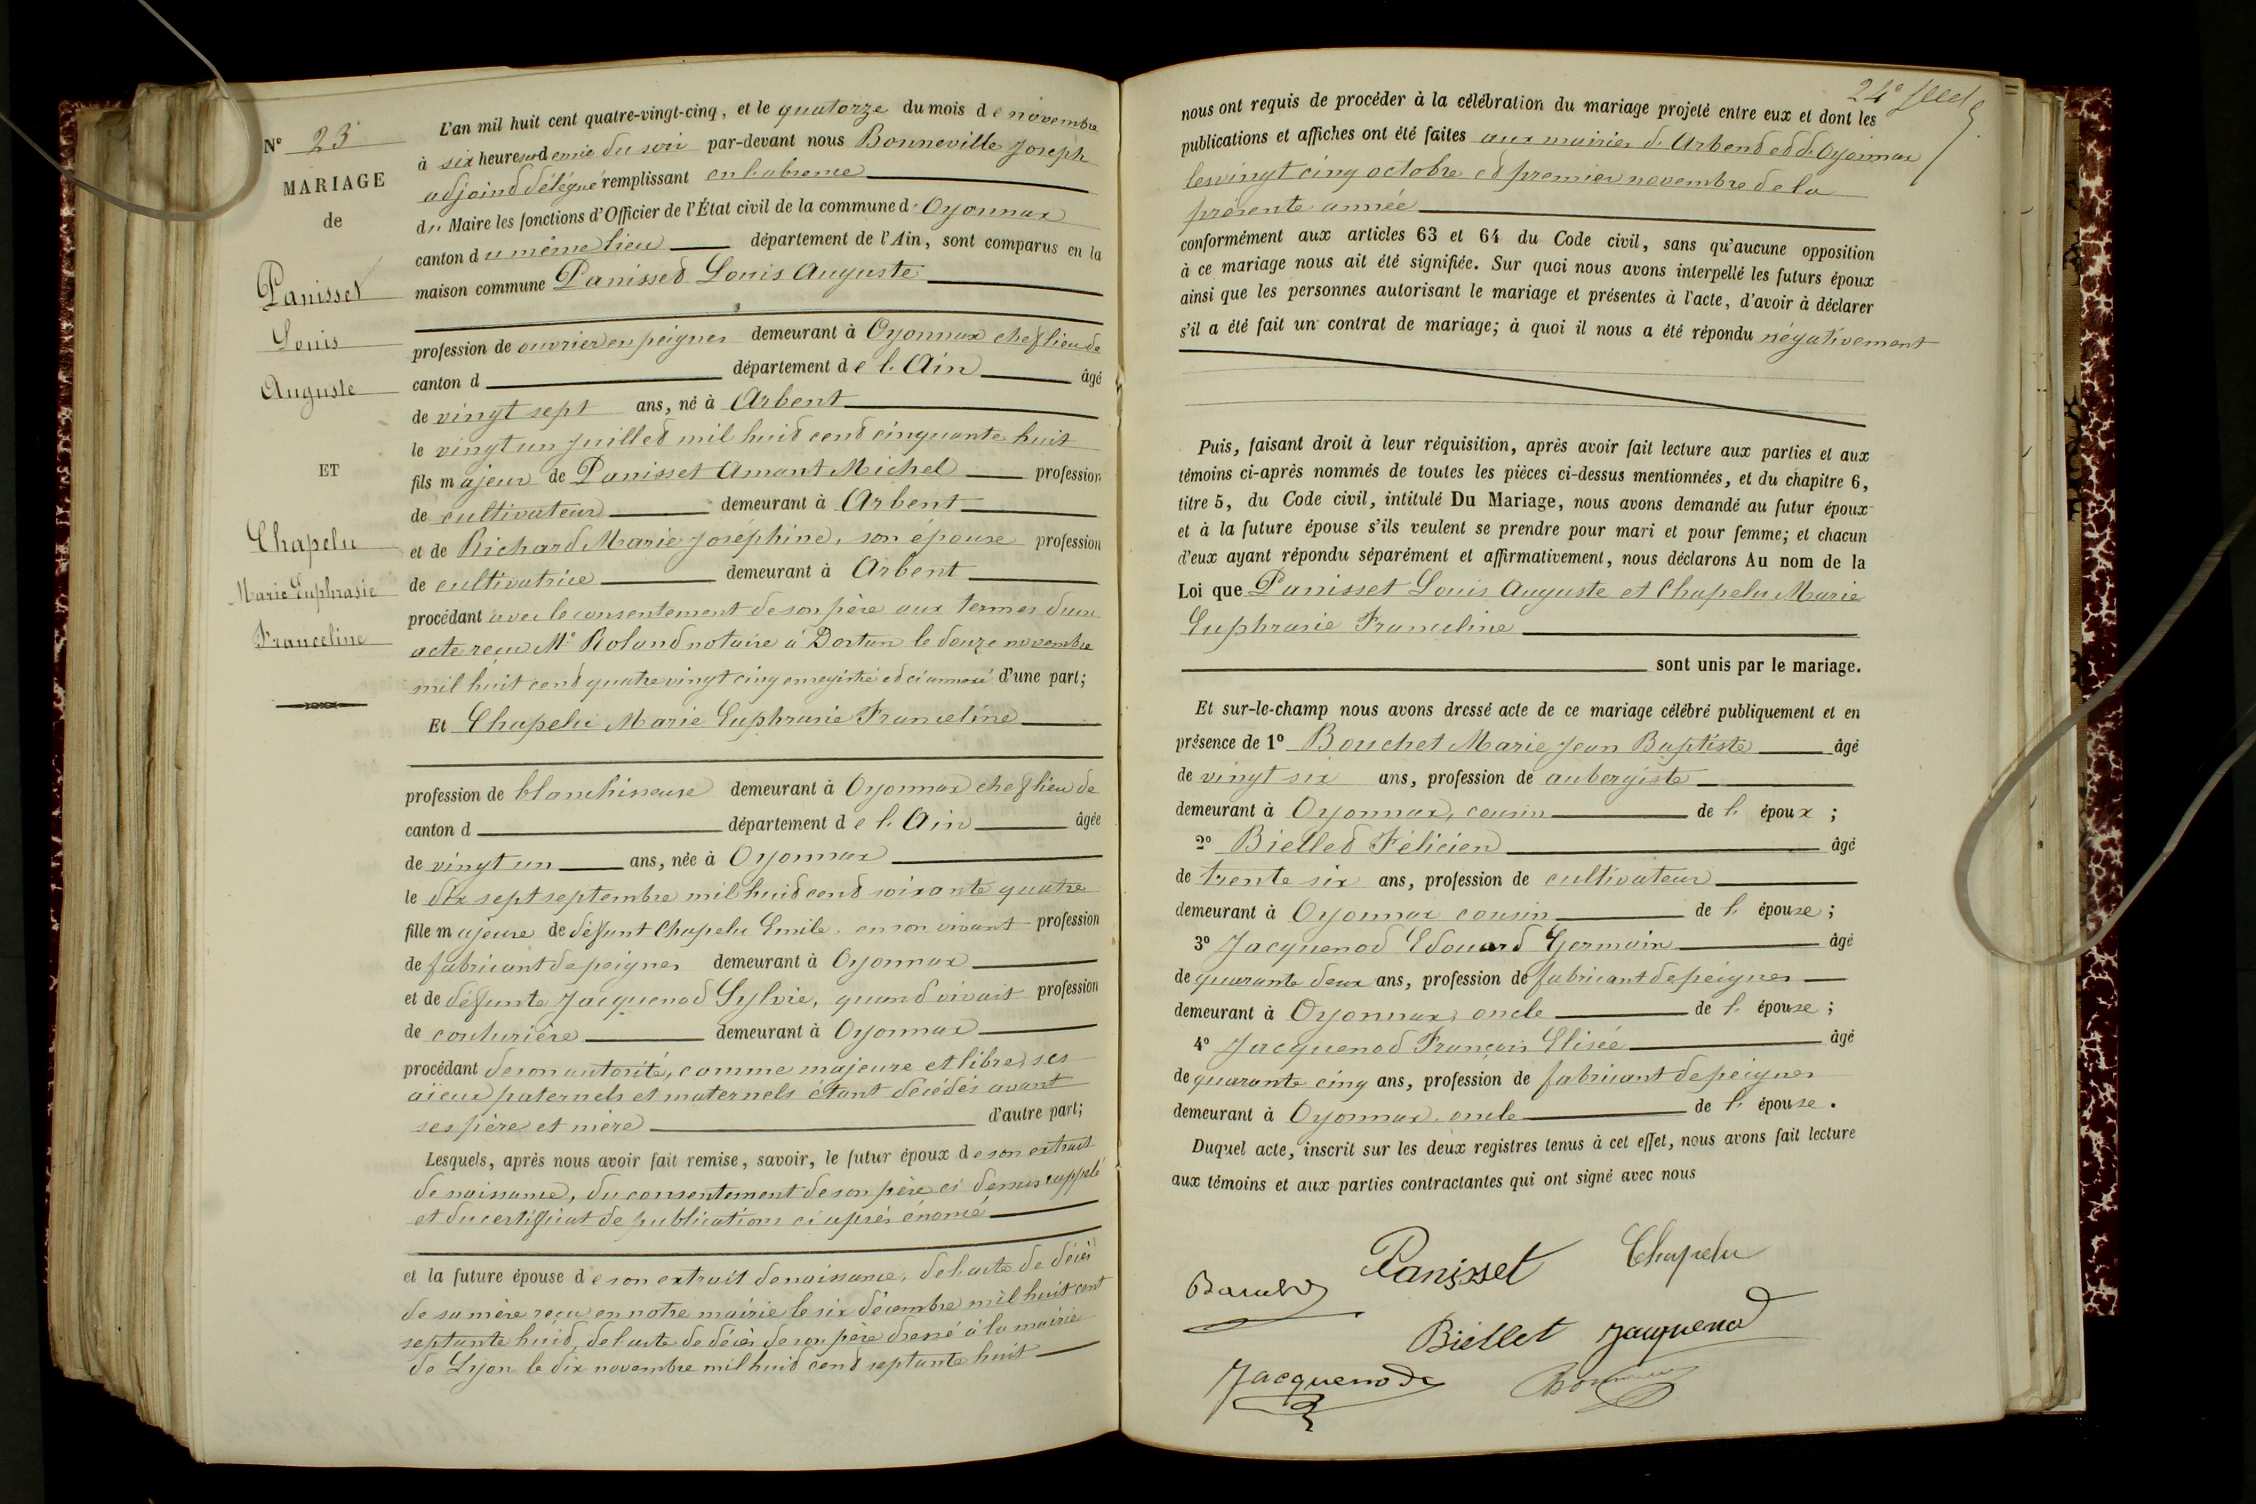 N° 23
MARIAGE
de
Panisset
Louis
Auguste
ET
Chapelu
Marie Euphrasie
Franceline
L'an mil huit cent quatre-vingt-cinq, et le quatorze du mois de novembre
à six heures et demie du soir par-devant nous Bonneville Joseph
adjoint délégué remplissant en l'absence
du Maire les fonctions d'Officier de l'État civil de la commune d'Oyonnax
canton du même lieu département de l'Ain, sont comparus en la
maison commune Panisset Louis Auguste
profession de ouvrier en peignes demeurant à Oyonnax chef lieu de
canton d département de l'Ain âgé
de vingt sept ans, né à Arbent
le vingt un juillet mil huit cent cinquante huit
fils majeur de Panisset Amant Michel profession
de cultivateur demeurant à Arbent
et de Richard Marie Joséphine, son épouse profession
de cultivatrice demeurant à Arbent
procédant avec le consentement de son père aux termes d'un
acte reçu Me Roland notaire à Dortan le douze novembre
mil huit cent quatre vingt cinq enregistré et ci annexé d'une part;
Et Chapelu Marie Euphrasie Franceline
profession de blanchisseuse demeurant à Oyonnax chef lieu de
canton d département de l'Ain âgée
de vingt un ans, née à Oyonnax
le dix sept septembre mil huit cent soixante quatre
fille majeure de défunt Chapelu Emile, en son vivant profession
de fabricant de peignes demeurant à Oyonnax
et de défunte Jacquenod Sylvie, quand vivait profession
de couturière demeurant à Oyonnax
procédant de son autorité, comme majeure et libre, ses
aïeux paternels et maternels étant décédés avant
ses père et mère d'autre part;
Lesquels, après nous avoir fait remise, savoir, le futur époux de son extrait
de naissance, du consentement de son père ci dessus rappelé
et du certificat de publications ci après énoncé
et la future épouse de son extrait de naissance, de l'acte de décès
de sa mère reçu en notre mairie le six décembre mil huit cent
septante huit, de l'acte de décès de son père dressé à la mairie
de Lyon le dix novembre mil huit cent septante huit
24e
nous ont requis de procéder à la célébration du mariage projeté entre eux et dont les
publications et affiches ont été faites aux mairies d'Arbent et d'Oyonnax
les vingt cinq octobre et premier novembre de la
présente année
conformément aux articles 63 et 64 du Code civil, sans qu'aucune opposition
à ce mariage nous ait été signifiée. Sur quoi nous avons interpellé les futurs époux
ainsi que les personnes autorisant le mariage et présentes à l'acte, d'avoir à déclarer
s'il a été fait un contrat de mariage; à quoi il nous a été répondu négativement
Puis, faisant droit à leur réquisition, après avoir fait lecture aux parties et aux
témoins ci-après nommés de toutes les pièces ci-dessus mentionnées, et du chapitre 6,
titre 5, du Code civil, intitulé Du Mariage, nous avons demandé au futur époux
et à la future épouse s'ils veulent se prendre pour mari et pour femme; et chacun
d'eux ayant répondu séparément et affirmativement, nous déclarons Au nom de la
Loi que Panisset Louis Auguste et Chapelu Marie
Euphrasie Franceline
sont unis par le mariage.
Et sur-le-champ nous avons dressé acte de ce mariage célébré publiquement et en
présence de 1° Bouchet Marie Jean Baptiste âgé
de vingt six ans, profession de aubergiste
demeurant à Oyonnax, cousin de l'époux ;
2° Biellet Félicien âgé
de trente six ans, profession de cultivateur
demeurant à Oyonnax cousin de l'épouse ;
3° Jacquenod Edouard Germain âgé
de quarante deux ans, profession de fabricant de peignes
demeurant à Oyonnax, oncle de l'épouse ;
4° Jacquenod François Elisée âgé
de quarante cinq ans, profession de fabricant de peignes
demeurant à Oyonnax, oncle de l'épouse.
Duquel acte, inscrit sur les deux registres tenus à cet effet, nous avons fait lecture
aux témoins et aux parties contractantes qui ont signé avec nous
Panisset Chapelu
Biellet Jacquenod
Jacquenod